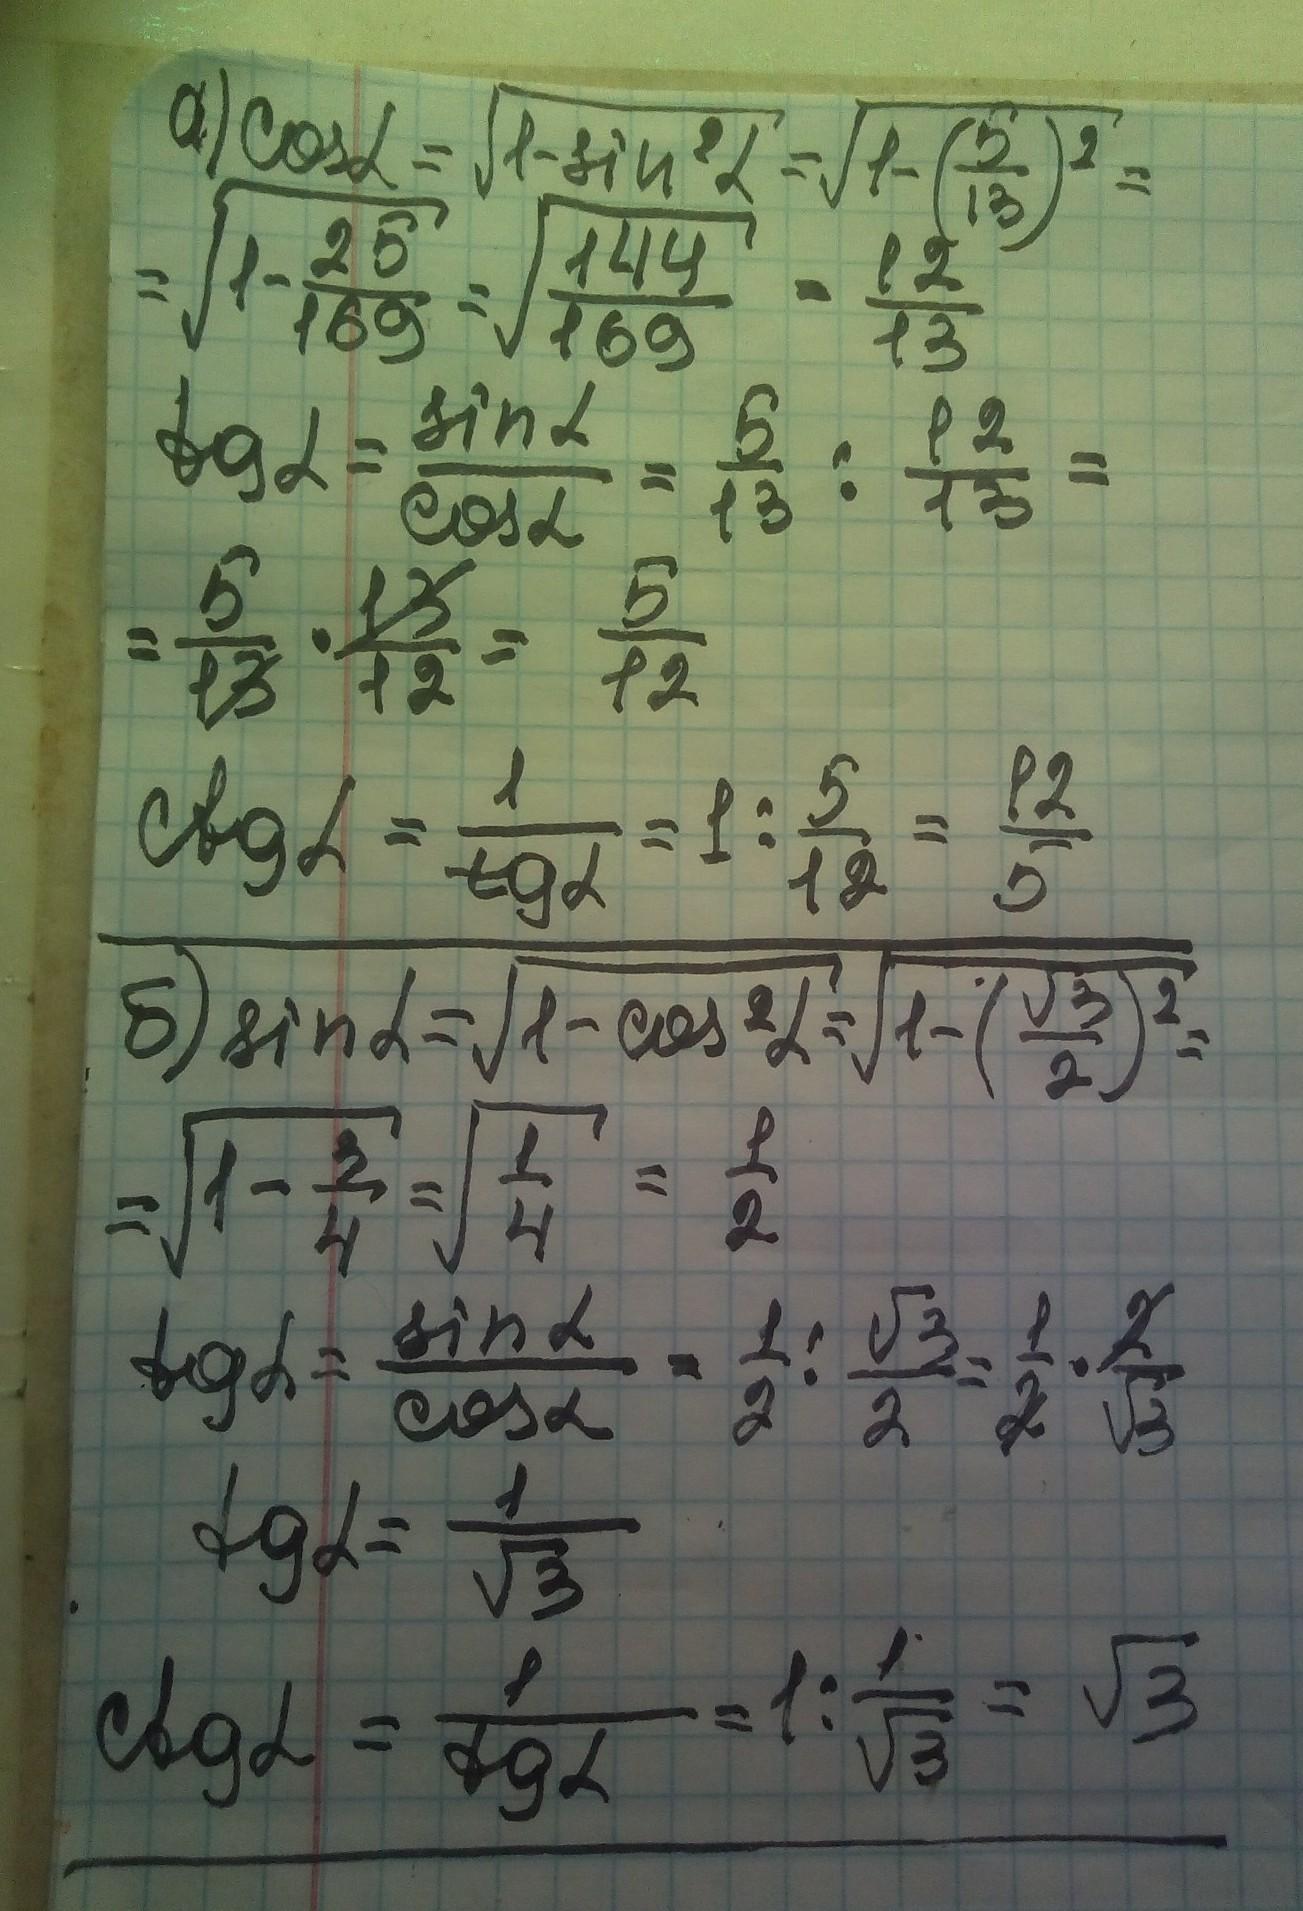 а) cosα = √(1-sin²α) = √(1-(5/13)²) =
= √(1-25/169) = √(144/169) = 12/13
tgα = sinα/cosα = 5/13 : 12/13 =
= 5/13 · 13/12 = 5/12
ctgα = 1/tgα = 1 : 5/12 = 12/5
б) sinα = √(1-cos²α) = √(1-(√3/2)²) =
= √(1-3/4) = √(1/4) = 1/2
tgα = sinα/cosα = 1/2 : √3/2 = 1/2 · 2/√3
tgα = 1/√3
ctgα = 1/tgα = 1 : 1/√3 = √3